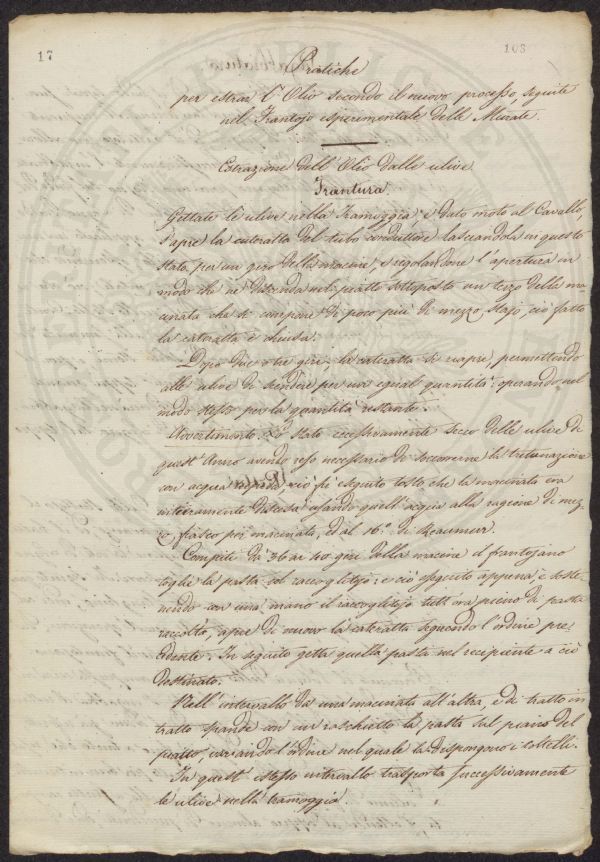 17
108
Pratiche
per estrar l'Olio secondo il nuovo processo, seguite
nel Frantojo esperimentale delle Murate.
Estrazione dell'Olio dalle ulive
Frantura.
Gettate le ulive nella Tramoggia, e dato moto al Cavallo,
s'apre la cateratta del tubo conduttore lasciandola in questo
stato per un giro della macine, e regolandone l'apertura in
modo che ne discenda nel piatto sottoposto un terzo della ma
cinata che si compone di poco più di mezzo stajo, ciò fatto
la cateratta è chiusa.
Dopo due o tre giri, la cateratta si riapre, permettendo
alle ulive di scendere per una egual quantità: operando nel
modo stesso per la quantità restante.
Avvertimento. Lo stato eccessivamente secco delle ulive di
quest'Anno avendo reso necessario di soccorrerne la triturazione
con acqua, ciò fu eseguito tosto che la macinata era
intieramente discesa usando quell'acqua alla ragione di mez
zo fiasco per macinata, ed al 16°. di Reaumur.
Compiti da 36 ai 40 giri della macine il frantojano
toglie la pasta col raccoglitojo: e ciò eseguito appena, e soste
nendo con una mano il raccoglitojo tutt'ora pieno di pasta
raccolta, apre di nuovo la cateratta seguendo l'ordine pre
cedente. In seguito getta quella pasta nel recipiente a ciò
destinato.
Nell'intervallo da una macinata all'altra, e di tratto in
tratto spande con un raschietto la pasta sul piano del
piatto, variando l'ordine nel quale la dispongono i coltelli.
In quest'istesso intervallo trasporta successivamente
le ulive nella tramoggia.